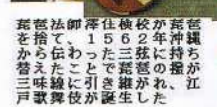 琵琶法師澤住検校が琵琶
を捨て1562年沖縄
から伝わった三弦に持ち
替えたことで琵琶の撥が
三味線に引き継がれ、江
戸歌舞伎が誕生した